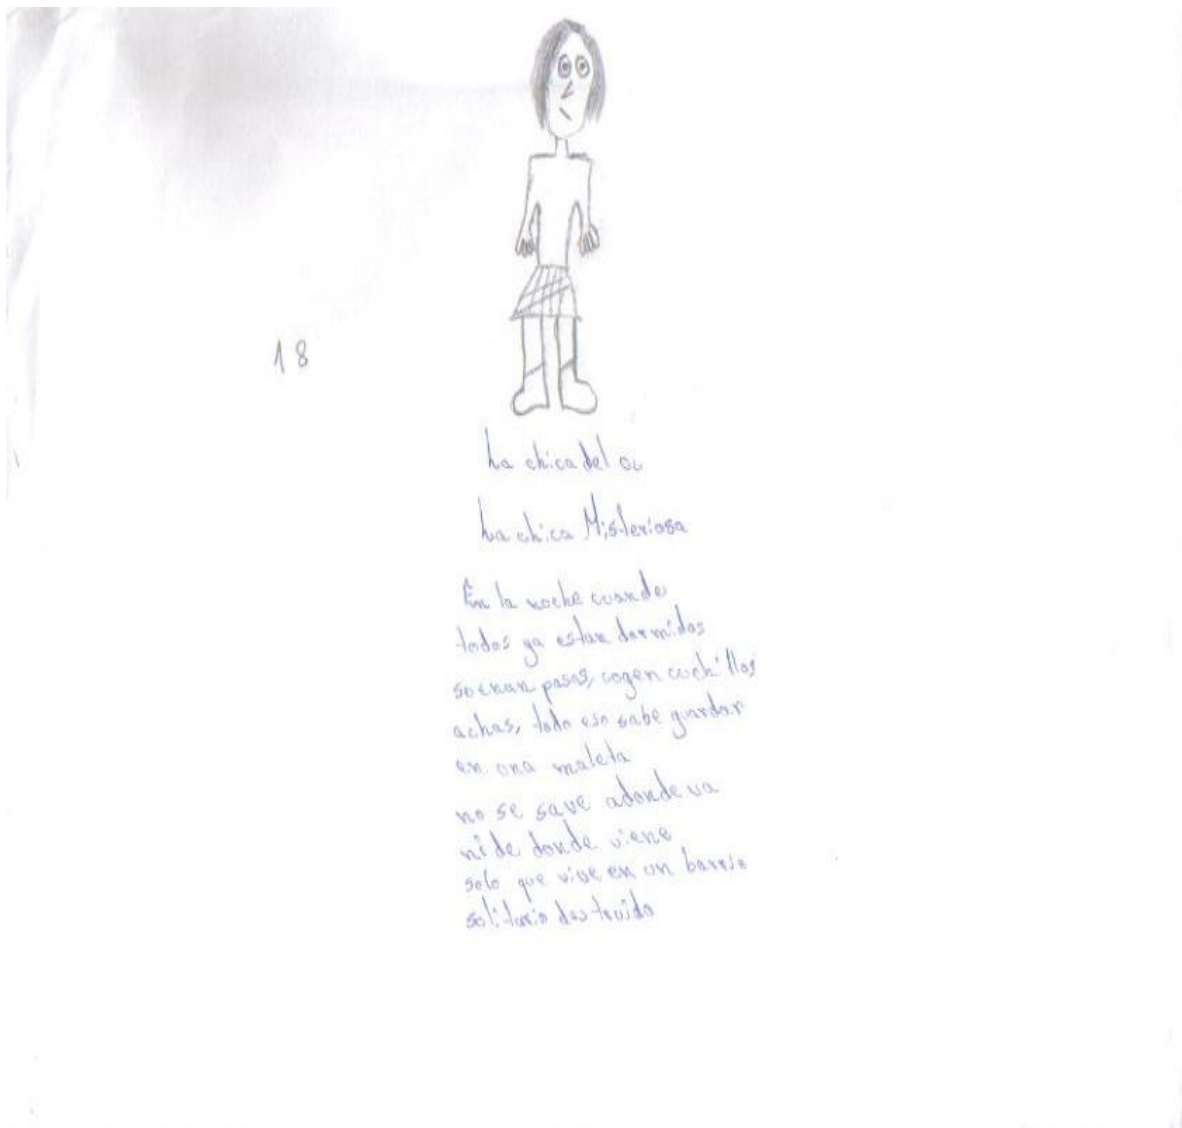 18
La chica del ou
La chica Misteriosa
En la noche cuando
todos ya estan dormidos
soenan pasos, cogen cuchillos
achas, todo eso sabe guardar
en una maleta
no se save adonde va
ni de donde viene
solo que vive en un barrio
solitario destruido